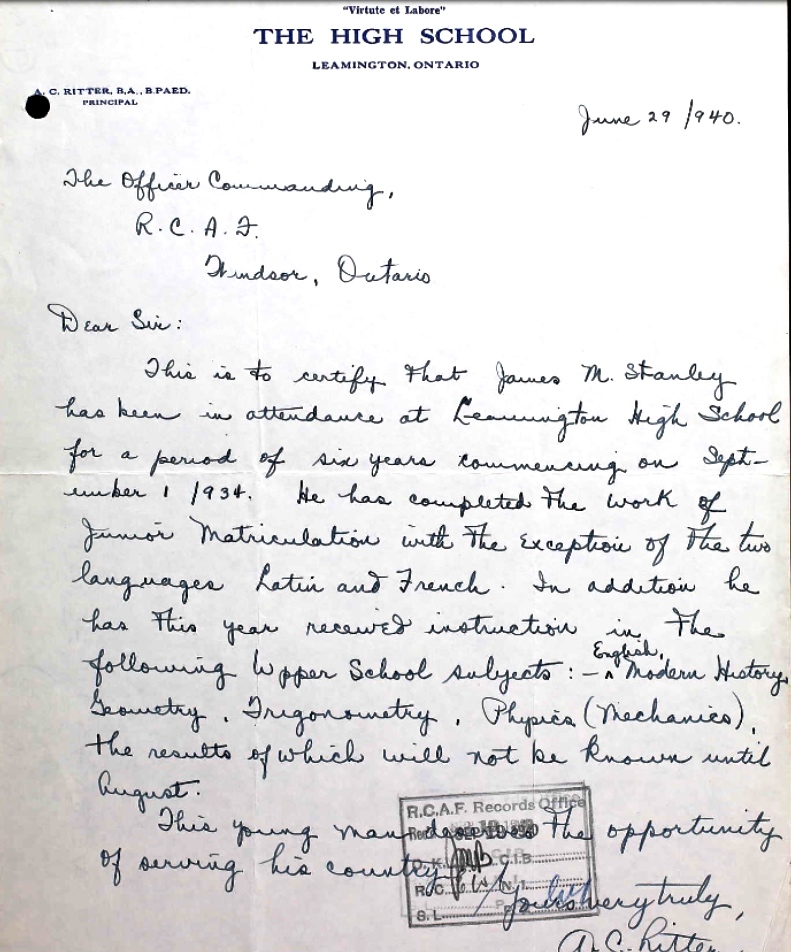 "Virtute et Labore"
THE HIGH SCHOOL
LEAMINGTON, ONTARIO
A. C. RITTER, B.A., B.PAED.
PRINCIPAL
June 29 1940.
The Officer Commanding,
R. C. A. F.
Windsor, Ontario
Dear Sir:
This is to certify that James M. Stanley
has been in attendance at Leamington High School
for a period of six years commencing on Sept-
ember 1 1934. He has completed the work of
Junior Matriculation with the exception of the two
languages Latin and French. In addition he
has this year received instruction in the
following Upper School subjects: – ^ English, Modern History,
Geometry, Trigonometry, Physics (Mechanics),
the results of which will not be known until
August.
This young man the opportunity
of serving his country.
R.C.A.F. Records Office
Rec'd SEP 19
C.I.B.
R.C.
S.L.
Yours very truly,
A. C. Ritter